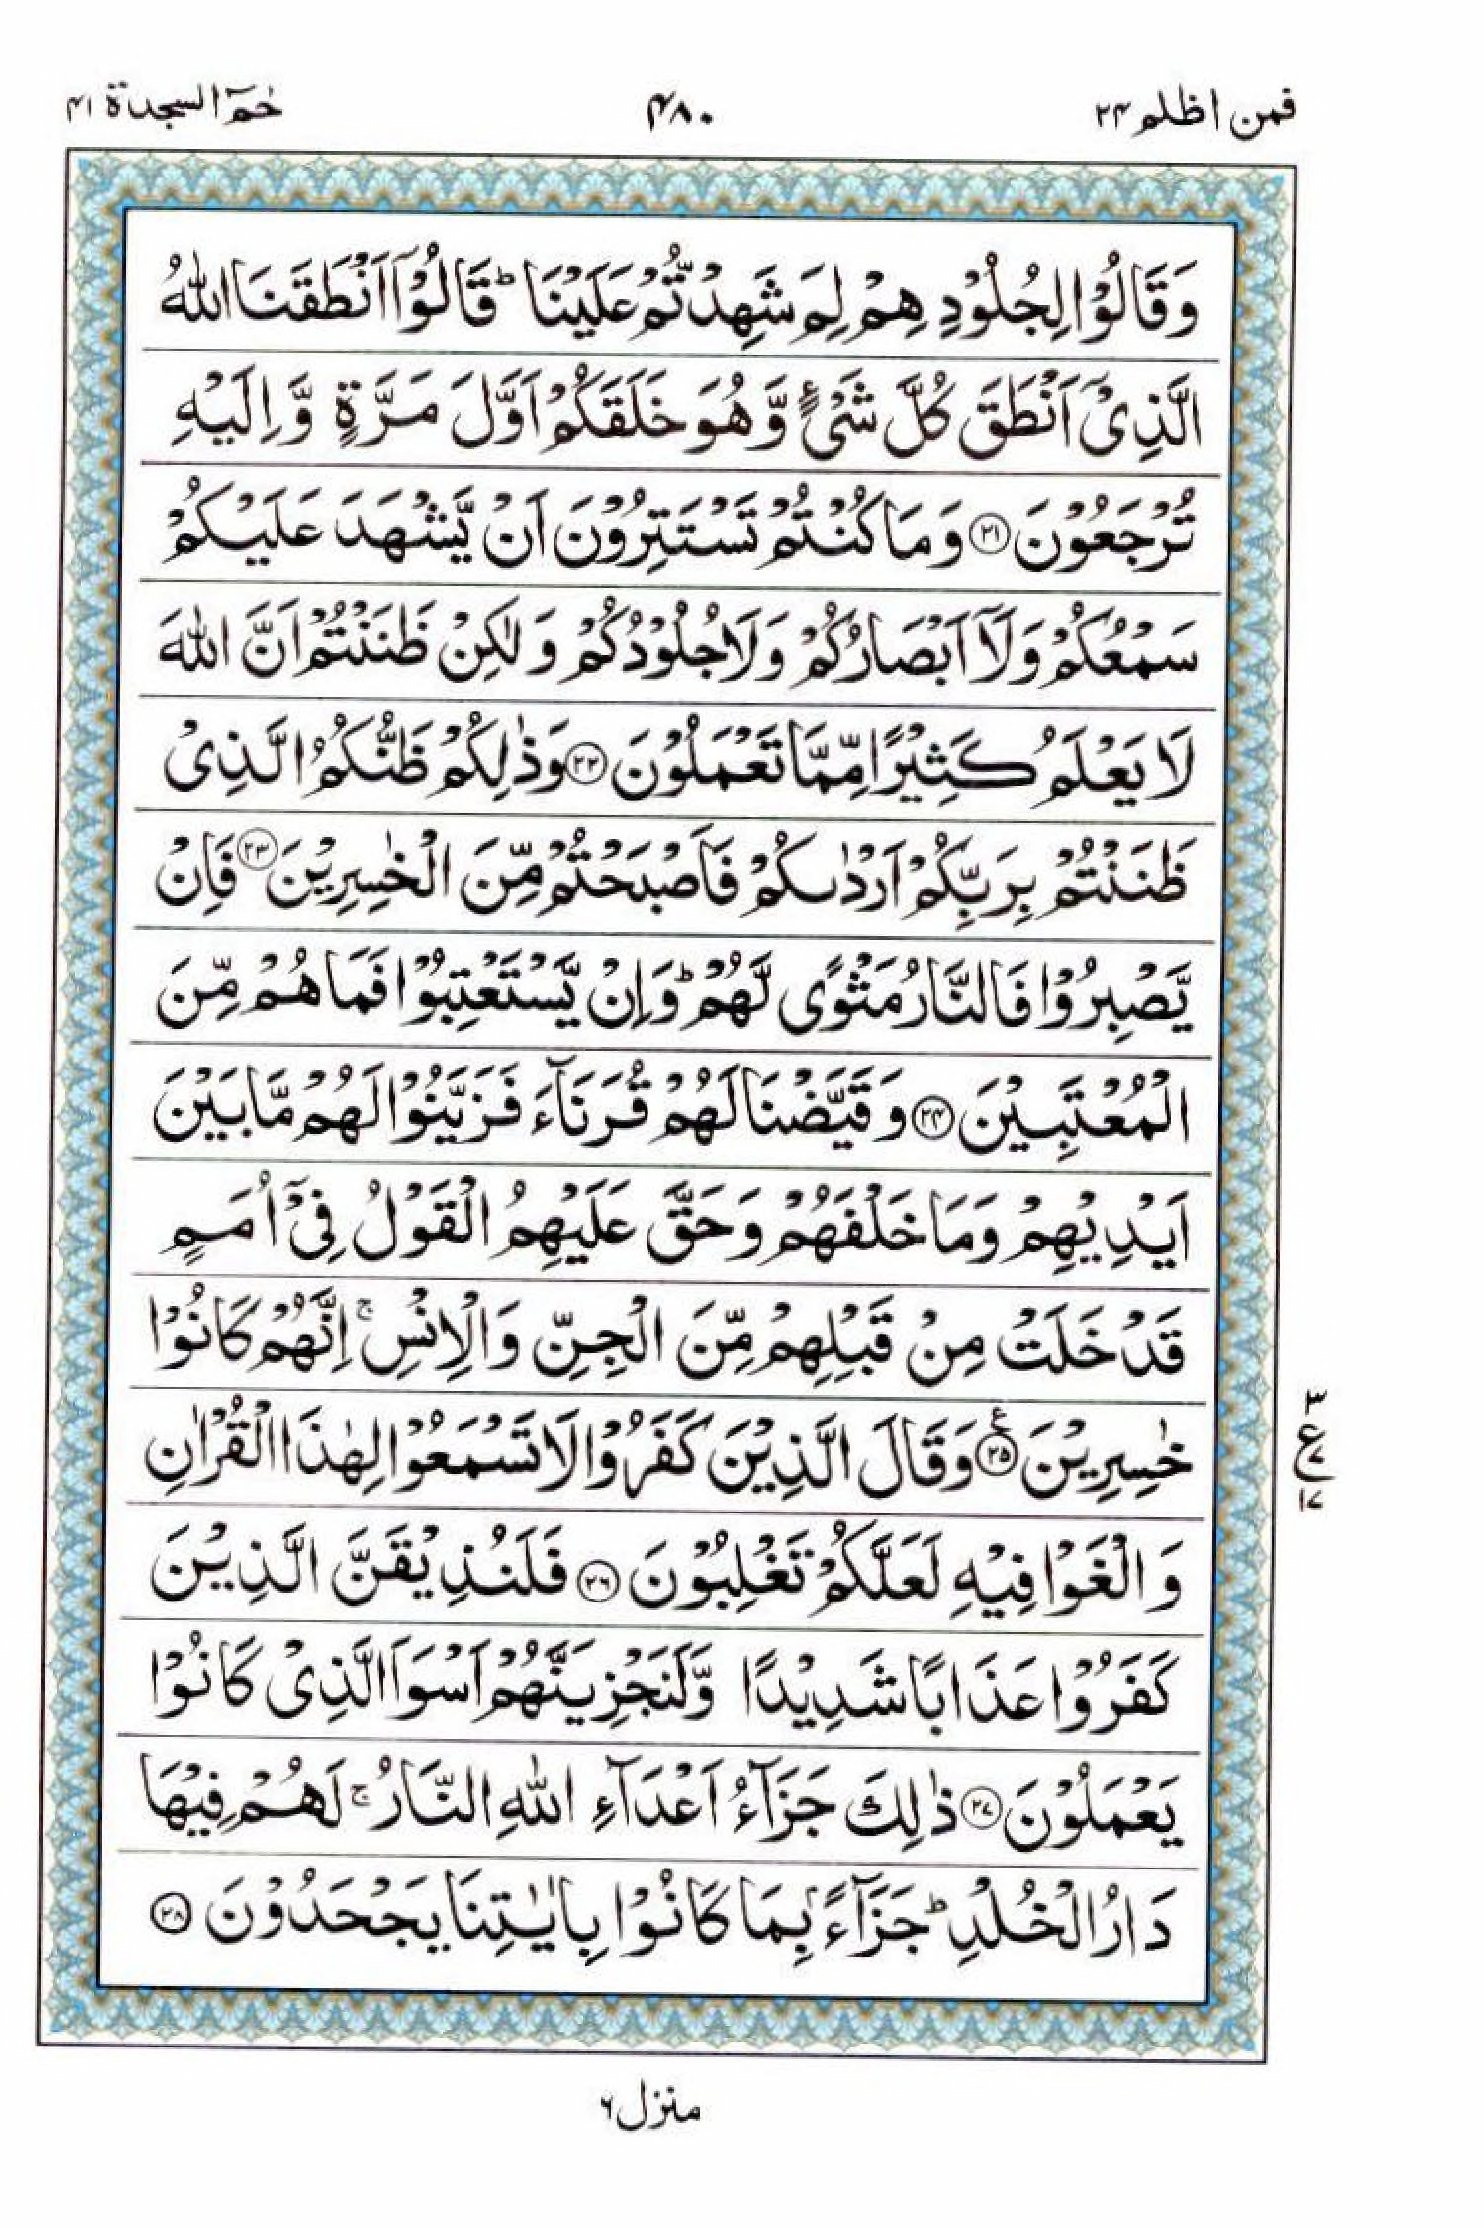 فمن اظلم ۲۴
۴۸۰
حٰمٓ السجدة ۴۱
وَقَالُوْا لِجُلُوْدِهِمْ لِمَ شَهِدْتُّمْ عَلَيْنَا ؕ قَالُوْٓا اَنْطَقَنَا اللّٰهُ
الَّذِيْٓ اَنْطَقَ كُلَّ شَيْءٍ وَّهُوَ خَلَقَكُمْ اَوَّلَ مَرَّةٍ وَّاِلَيْهِ
تُرْجَعُوْنَ ﴿۲۱﴾ وَمَا كُنْتُمْ تَسْتَتِرُوْنَ اَنْ يَّشْهَدَ عَلَيْكُمْ
سَمْعُكُمْ وَلَآ اَبْصَارُكُمْ وَلَا جُلُوْدُكُمْ وَلٰكِنْ ظَنَنْتُمْ اَنَّ اللّٰهَ
لَا يَعْلَمُ كَثِيْرًا مِّمَّا تَعْمَلُوْنَ ﴿۲۲﴾ وَذٰلِكُمْ ظَنُّكُمُ الَّذِيْ
ظَنَنْتُمْ بِرَبِّكُمْ اَرْدٰىكُمْ فَاَصْبَحْتُمْ مِّنَ الْخٰسِرِيْنَ ﴿۲۳﴾ فَاِنْ
يَّصْبِرُوْا فَالنَّارُ مَثْوًى لَّهُمْ ؕ وَاِنْ يَّسْتَعْتِبُوْا فَمَا هُمْ مِّنَ
الْمُعْتَبِيْنَ ﴿۲۴﴾ وَقَيَّضْنَا لَهُمْ قُرَنَآءَ فَزَيَّنُوْا لَهُمْ مَّا بَيْنَ
اَيْدِيْهِمْ وَمَا خَلْفَهُمْ وَحَقَّ عَلَيْهِمُ الْقَوْلُ فِيْٓ اُمَمٍ
قَدْ خَلَتْ مِنْ قَبْلِهِمْ مِّنَ الْجِنِّ وَالْاِنْسِ ۚ اِنَّهُمْ كَانُوْا
خٰسِرِيْنَ ﴿۲۵﴾ ع وَقَالَ الَّذِيْنَ كَفَرُوْا لَا تَسْمَعُوْا لِهٰذَا الْقُرْاٰنِ
۳ ع ۷ ۱۷
وَالْغَوْا فِيْهِ لَعَلَّكُمْ تَغْلِبُوْنَ ﴿۲۶﴾ فَلَنُذِيْقَنَّ الَّذِيْنَ
كَفَرُوْا عَذَابًا شَدِيْدًا وَّلَنَجْزِيَنَّهُمْ اَسْوَاَ الَّذِيْ كَانُوْا
يَعْمَلُوْنَ ﴿۲۷﴾ ذٰلِكَ جَزَآءُ اَعْدَآءِ اللّٰهِ النَّارُ ۚ لَهُمْ فِيْهَا
دَارُ الْخُلْدِ ؕ جَزَآءًۢ بِمَا كَانُوْا بِاٰيٰتِنَا يَجْحَدُوْنَ ﴿۲۸﴾
منزل ۶